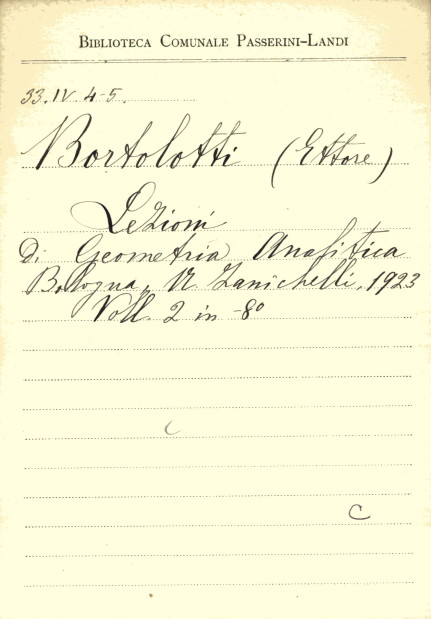 BIBLIOTECA COMUNALE PASSERINI-LANDI
33. IV. 4-5.
Bortolotti (Ettore)
Lezioni
di Geometria Analitica
Bologna, N. Zanichelli, 1923
Voll. 2 in -8º
C
C